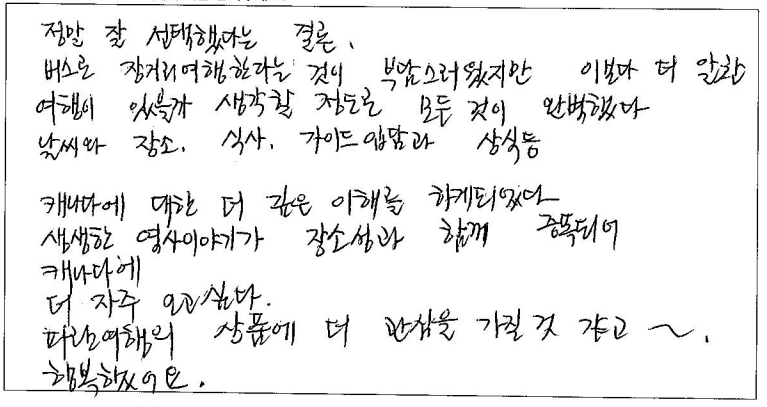 정말 잘 선택했다는 결론.
버스로 장거리여행한다는 것이 부담스러웠지만 이보다 더 알찬
여행이 있을까 생각할 정도로 모든 것이 완벽했다
날씨와 장소, 식사, 가이드 입담과 상식등
캐나다에 대한 더 깊은 이해를 하게되었다
생생한 역사이야기가 장소성과 함께 증폭되어
캐나다에
더 자주 오고싶다.
파란여행의 상품에 더 관심을 가질 것 같고 ~.
행복했어요.